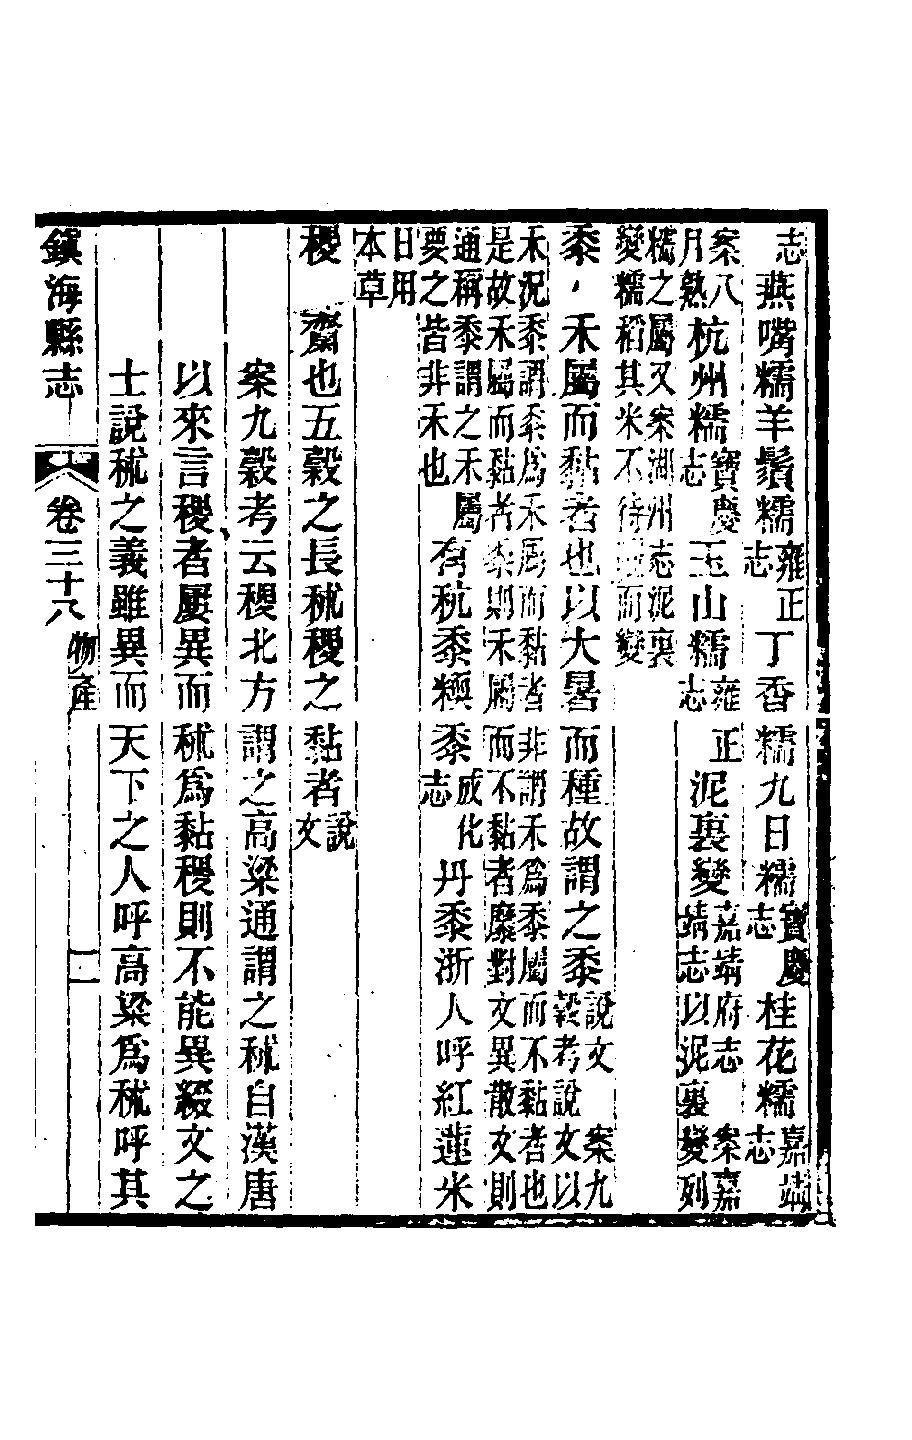 志燕嘴糯羊鬚糯雍正志丁香糯九日糯寶慶志桂花糯嘉靖志
案八月熟杭州糯寶慶志玉山糯雍正志泥裏變嘉靖府志案嘉靖志以泥裏變列
糯之屬又案湖州志泥裏變糯稻其米不待而變
黍禾屬而黏者也以大暑而種故謂之黍說文案九穀考說文以
禾況黍謂黍爲禾屬而黏者非謂禾爲黍屬而不黏者也是故禾屬而黏者黍則禾屬而不黏者穈對文異散文則
通稱黍謂之禾屬要之皆非禾也有秔黍糯黍成化志丹黍浙人呼紅蓮米
日用本草
稷齋也五穀之長秫稷之黏者說文
案九穀考云稷北方謂之高粱通謂之秫自漢唐
以來言稷者屢異而秫爲黏稷則不能異綴文之
士說秫之義雖異而天下之人呼高粱爲秫呼其
鎮海縣志
卷三十八
物產
二